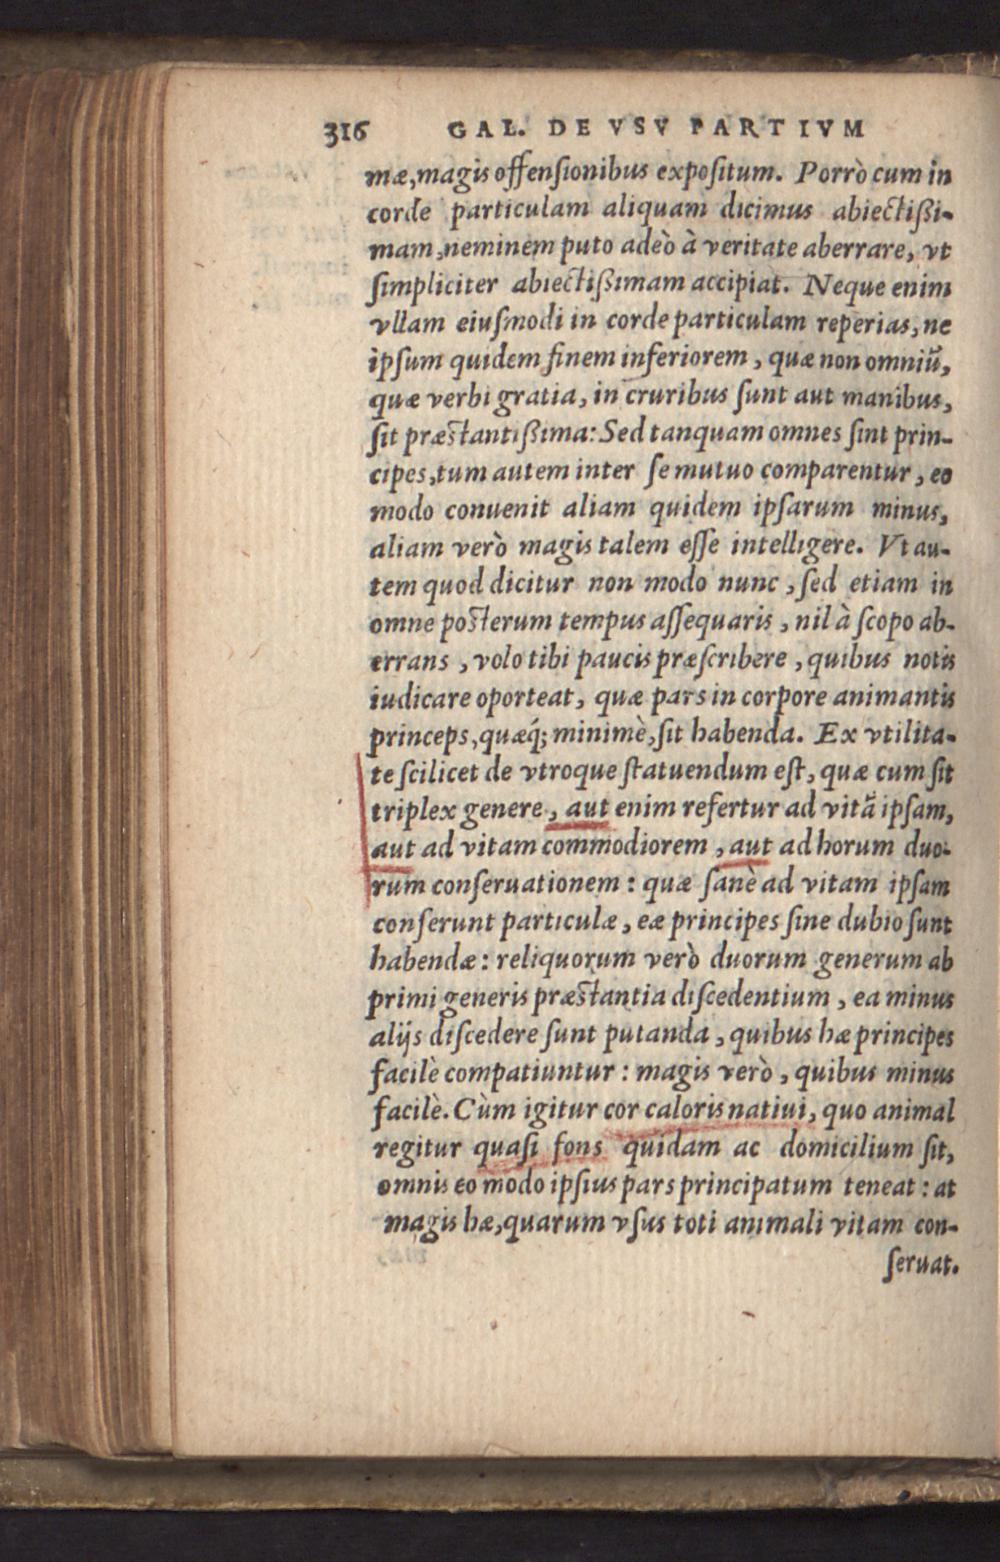 316 GAL. DE VSV PARTIVM
mæ, magis offenſionibus expoſitum. Porrò cum in
corde particulam aliquam dicimus abiectißi-
mam, neminem puto adeò à veritate aberrare, vt
ſimpliciter abiectißimam accipiat. Neque enim
vllam eiuſmodi in corde particulam reperias, ne
ipſum quidem finem inferiorem, quæ non omniũ,
quæ verbi gratia, in cruribus ſunt aut manibus,
ſit præſtantißima: Sed tanquam omnes ſint prin-
cipes, tum autem inter ſe mutuo comparentur, eo
modo conuenit aliam quidem ipſarum minus,
aliam verò magis talem eſſe intelligere. Vt au-
tem quod dicitur non modo nunc, ſed etiam in
omne poſterum tempus aſſequaris, nil à ſcopo ab-
errans, volo tibi paucis præſcribere, quibus notis
iudicare oporteat, quæ pars in corpore animantis
princeps, quæq́; minimè, ſit habenda. Ex vtilita-
te ſcilicet de vtroque ſtatuendum eſt, quæ cum ſit
triplex genere, aut enim refertur ad vitã ipſam,
aut ad vitam commodiorem, aut ad horum duo-
rum conſeruationem: quæ ſanè ad vitam ipſam
conſerunt particulæ, eæ principes ſine dubio ſunt
habendæ: reliquorum verò duorum generum ab
primi generis præſtantia diſcedentium, ea minus
alijs diſcedere ſunt putanda, quibus hæ principes
facilè compatiuntur: magis verò, quibus minus
facilè. Cùm igitur cor caloris natiui, quo animal
regitur quaſi fons quidam ac domicilium ſit,
omnis eo modo ipſius pars principatum teneat: at
magis hæ, quarum vſus toti animali vitam con-
ſeruat.